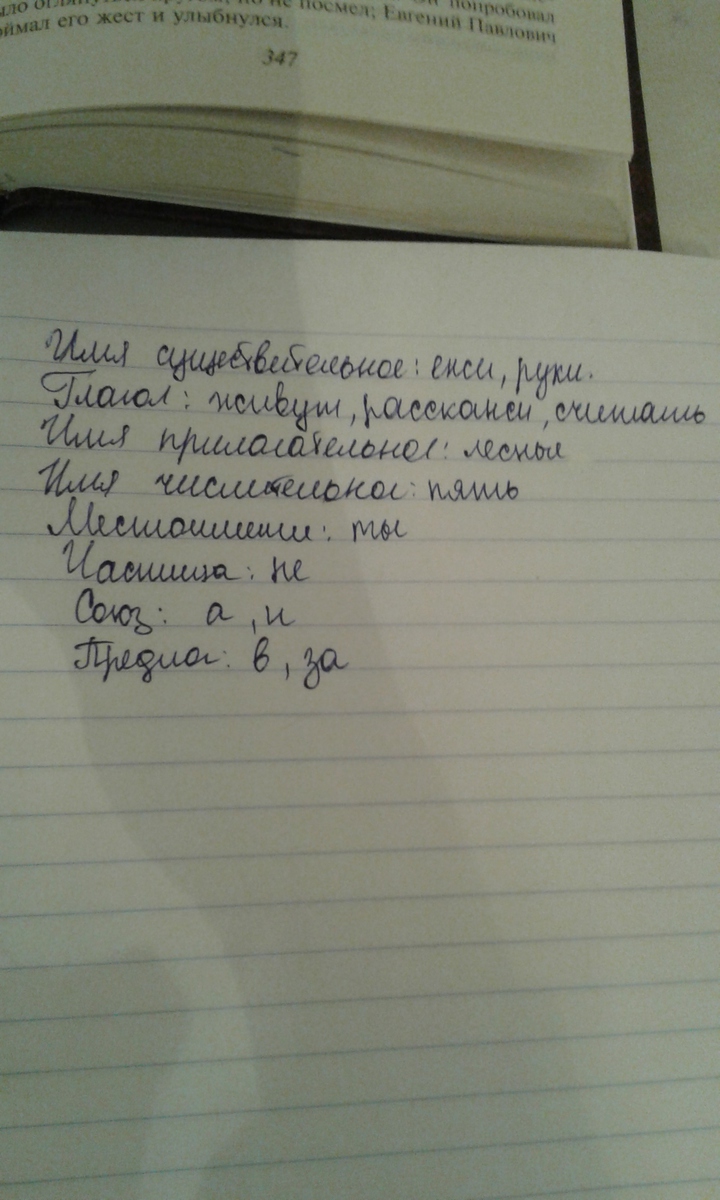 было оглянуться кругом, но не посмел; Он попробовал
оймал его жест и улыбнулся. Евгений Павлович
347
Имя существительное: ежи, руки.
Глагол: живут, расскажи, считать
Имя прилагательное: лесные
Имя числительное: пять
Местоимение: ты
Частица: не
Союз: а, и
Предлог: в, за